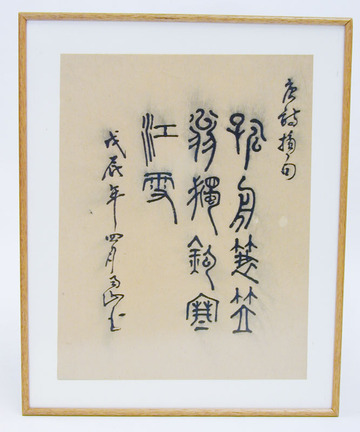 唐詩摘句
孤舟蓑笠
翁獨釣寒
江雪
戊辰年四月